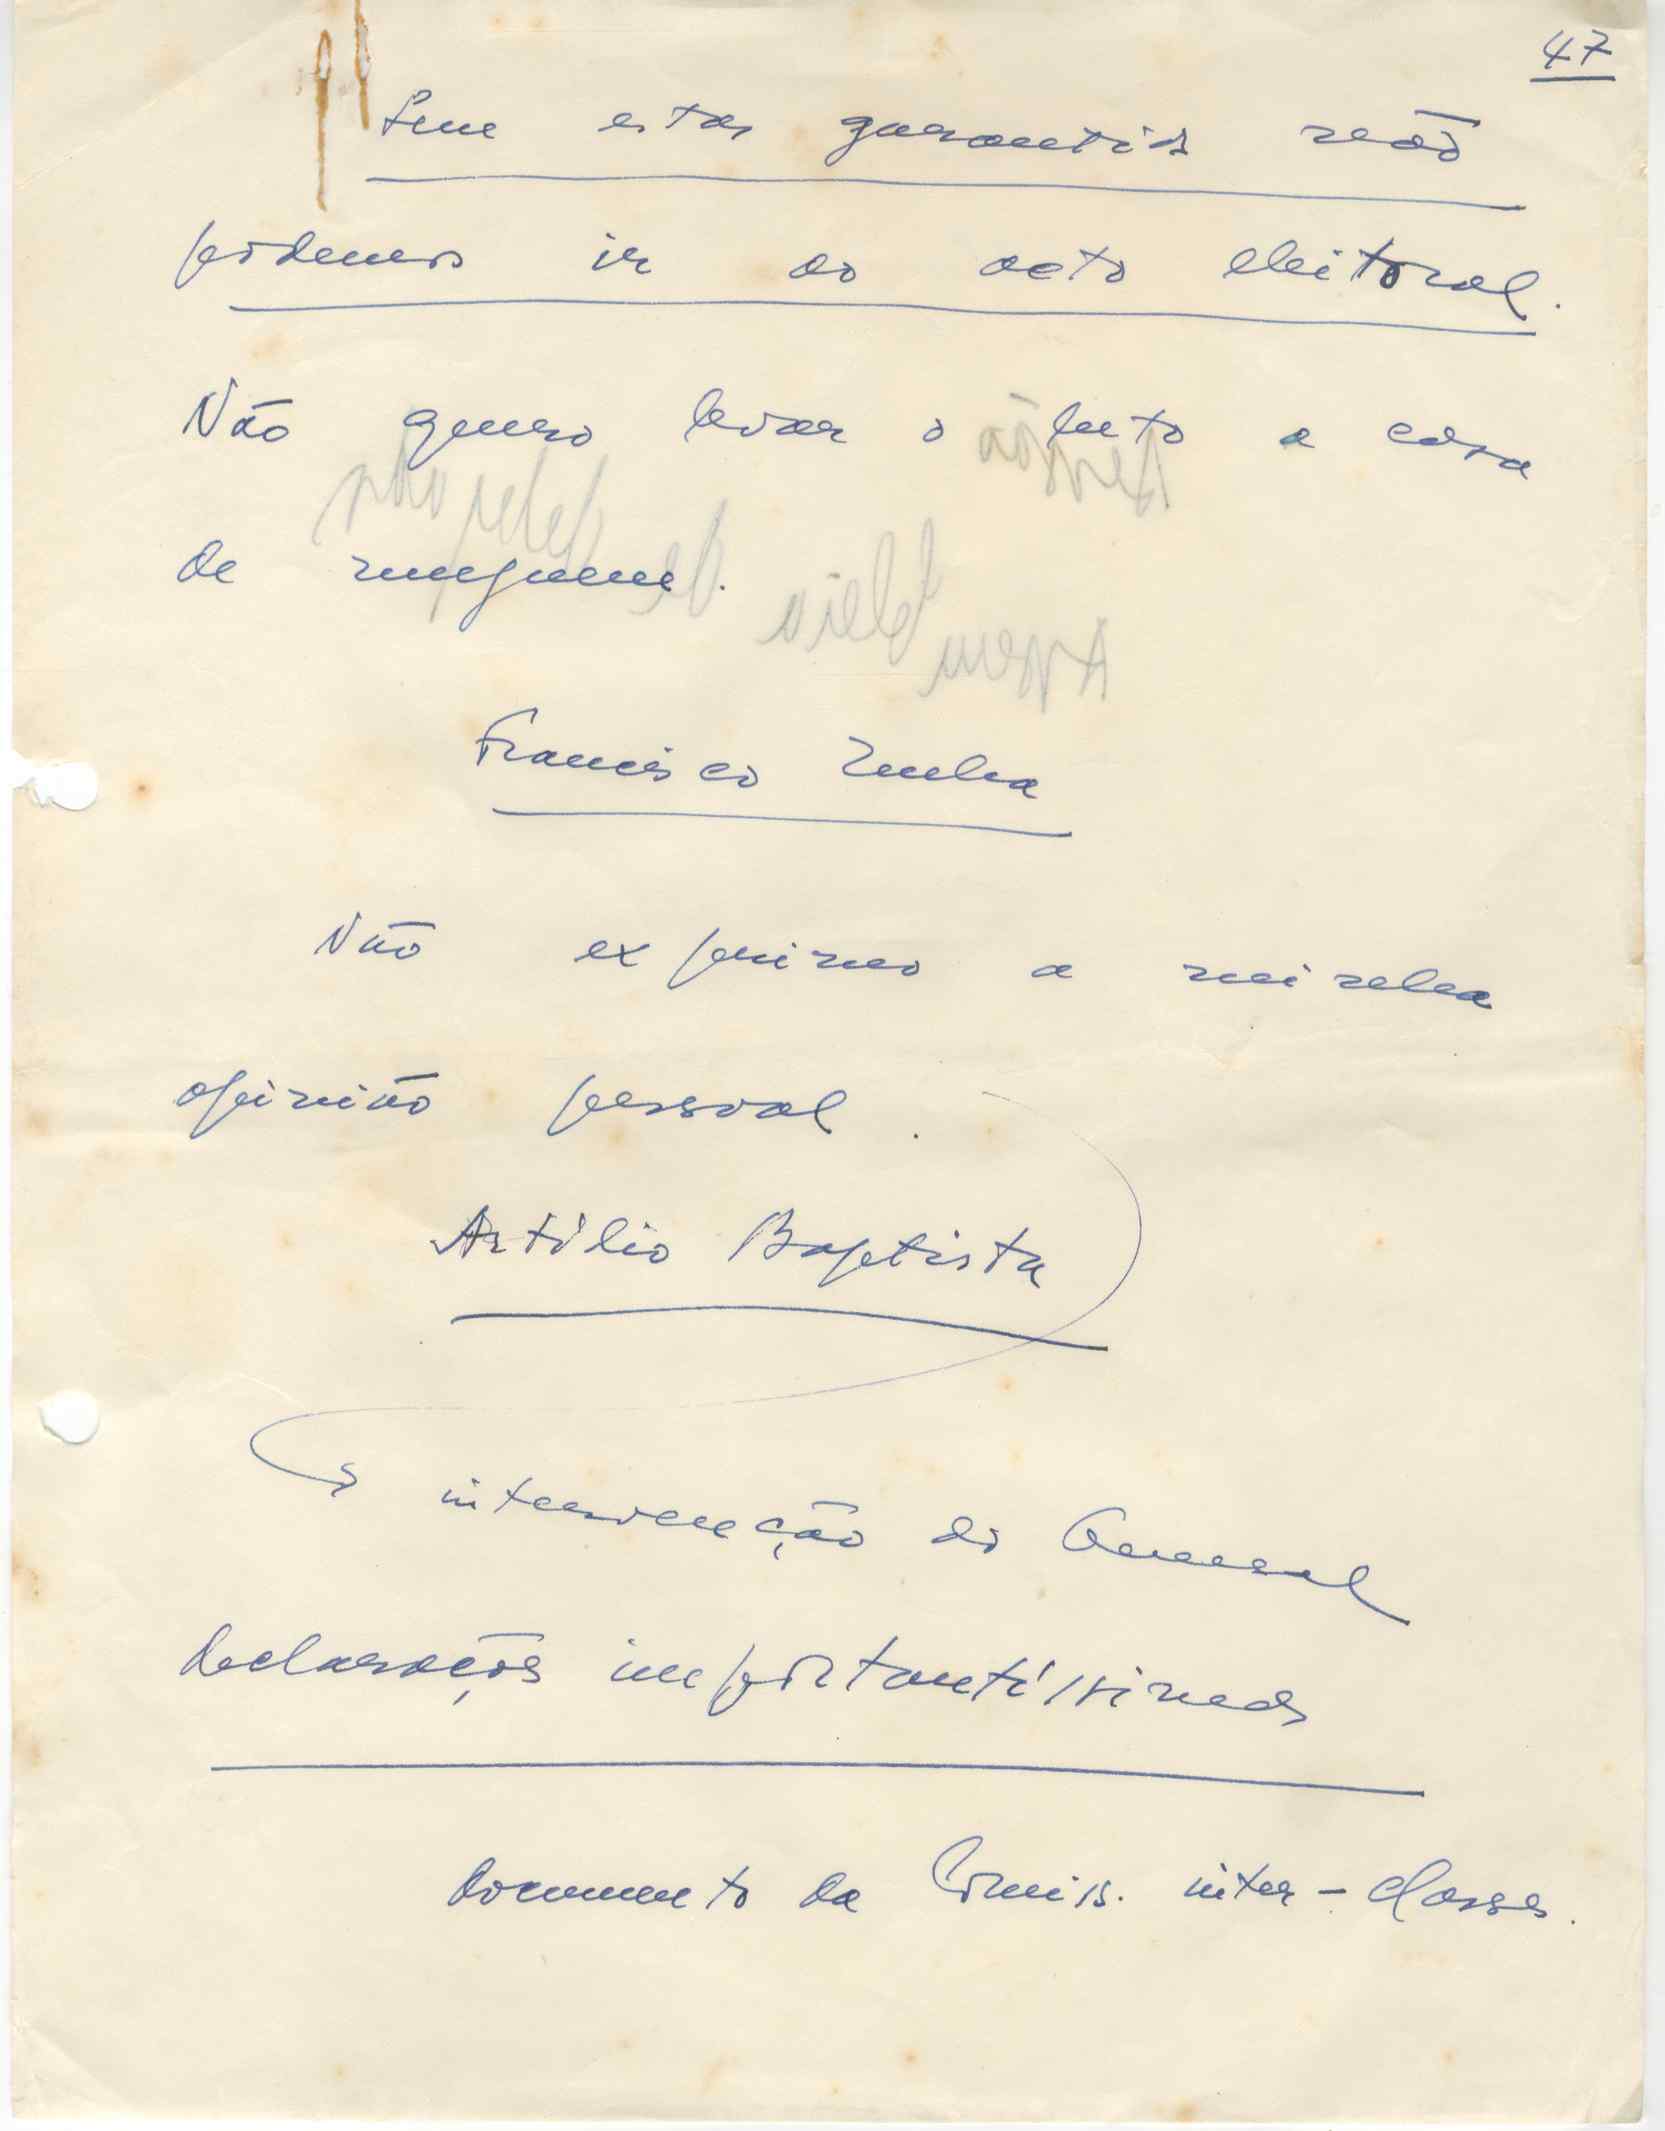 47
Sem estas garantias não
podemos ir ao acto eleitoral.
Não quero levar o luto a casa
de ninguem.
Francisco
Não exprimo a minha
opinião pessoal.
Artílio Baptista
intervenção do General
declarações importantíssimas
documento da Comiss. inter-classes.